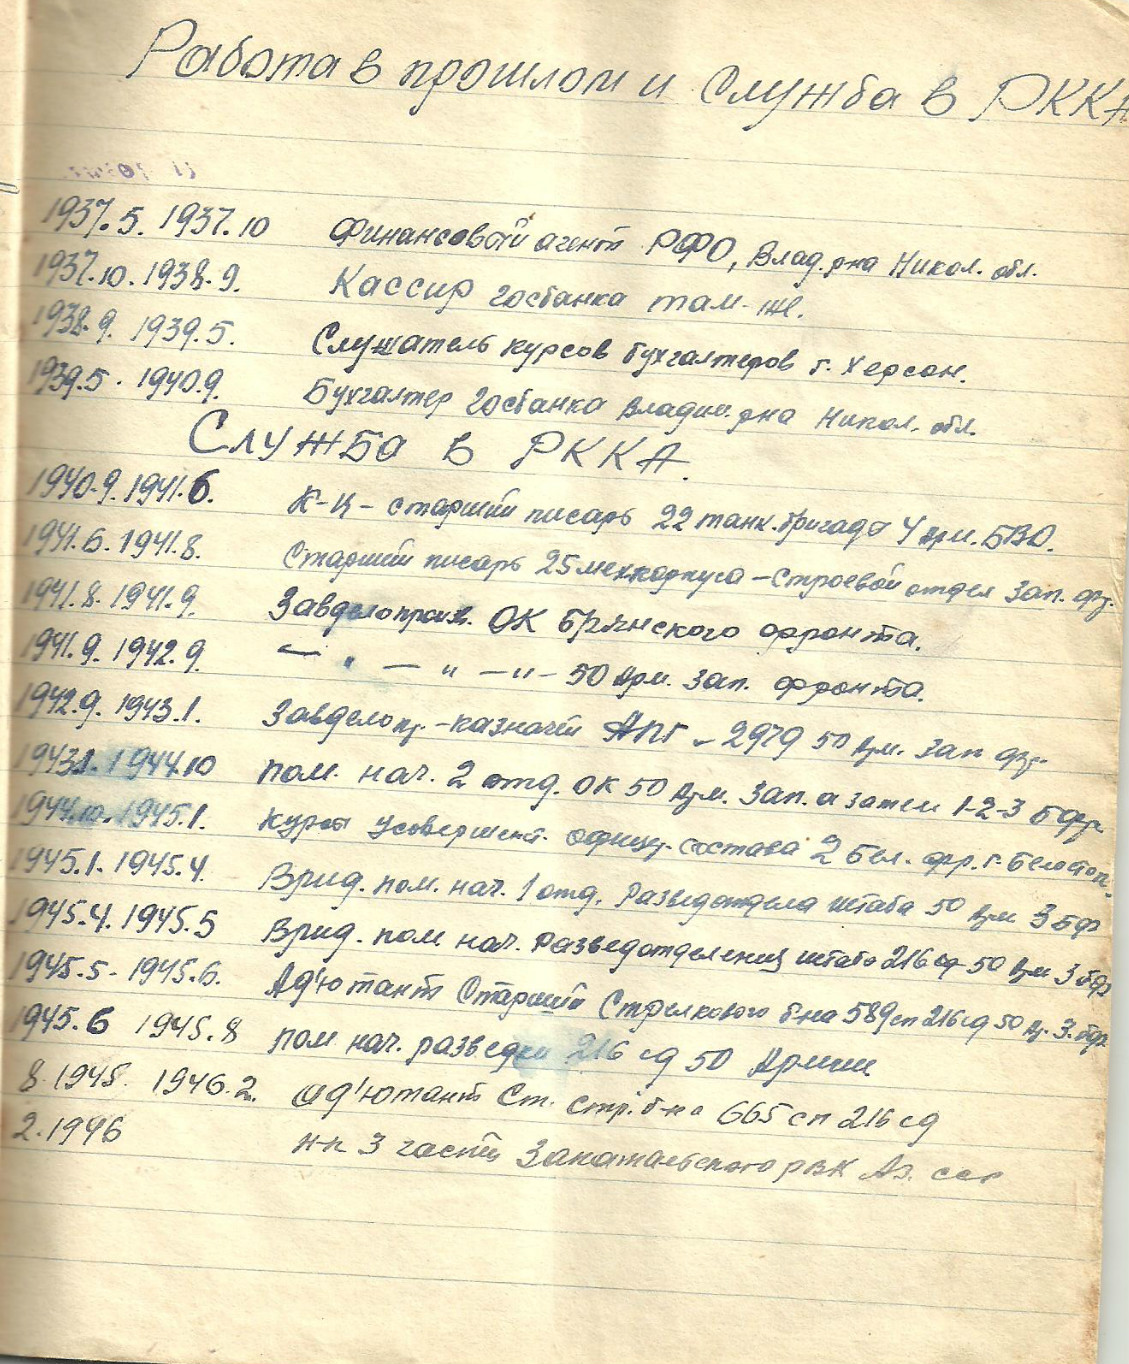 Работа в прошлом и Служба в РККА
1937.5. 1937.10 Финансовый агент РФО, Влад. р-на Никол. обл.
1937.10. 1938.9. Кассир госбанка там-же.
1938.9. 1939.5. Слушатель курсов бухгалтеров г. Херсон.
1939.5. 1940.9. Бухгалтер госбанка Владим. р-на Никол. обл.
Служба в РККА.
1940.9. 1941.6. К-ц – старший писарь 22 танк. бригада 4 Арм. БВО.
1941.6. 1941.8. Старший писарь 25 мехкорпуса – строевой отдел Зап. фр.
1941.8. 1941.9. Завделопроизв. ОК Брянского фронта.
1941.9. 1942.9. — " — " — " – 50 Арм. Зап. фронта.
1942.9. 1943.1. Завделопр. – казначей АПГ – 2979 50 Арм. Зап фр.
1943.1. 1944.10 пом. нач. 2 отд. ОК 50 Арм. Зап. а затем 1-2-3 Б фр.
1944.10. 1945.1. Курсы усовершенст. офицер. состава 2 Бел. фр. г. Белосток.
1945.1. 1945.4. Врид. пом. нач. 1 отд. Разведотдела штаба 50 Арм 3 Бф
1945.4. 1945.5 Врид. пом. нач. Разведотделения штаба 216 сд 50 Арм 3 бфр
1945.5. 1945.6. Ад'ютант Старший Стрелкового б-на 589 сп 216 сд 50 А. 3. бфр.
1945.6 1945.8 пом нач. разведки 216 сд 50 Армии
8.1945. 1946.2. Ад'ютант Ст. стр. б-на 665 сп 216 сд
2.1946 н-к 3 части Закатальского РВК Аз. сср